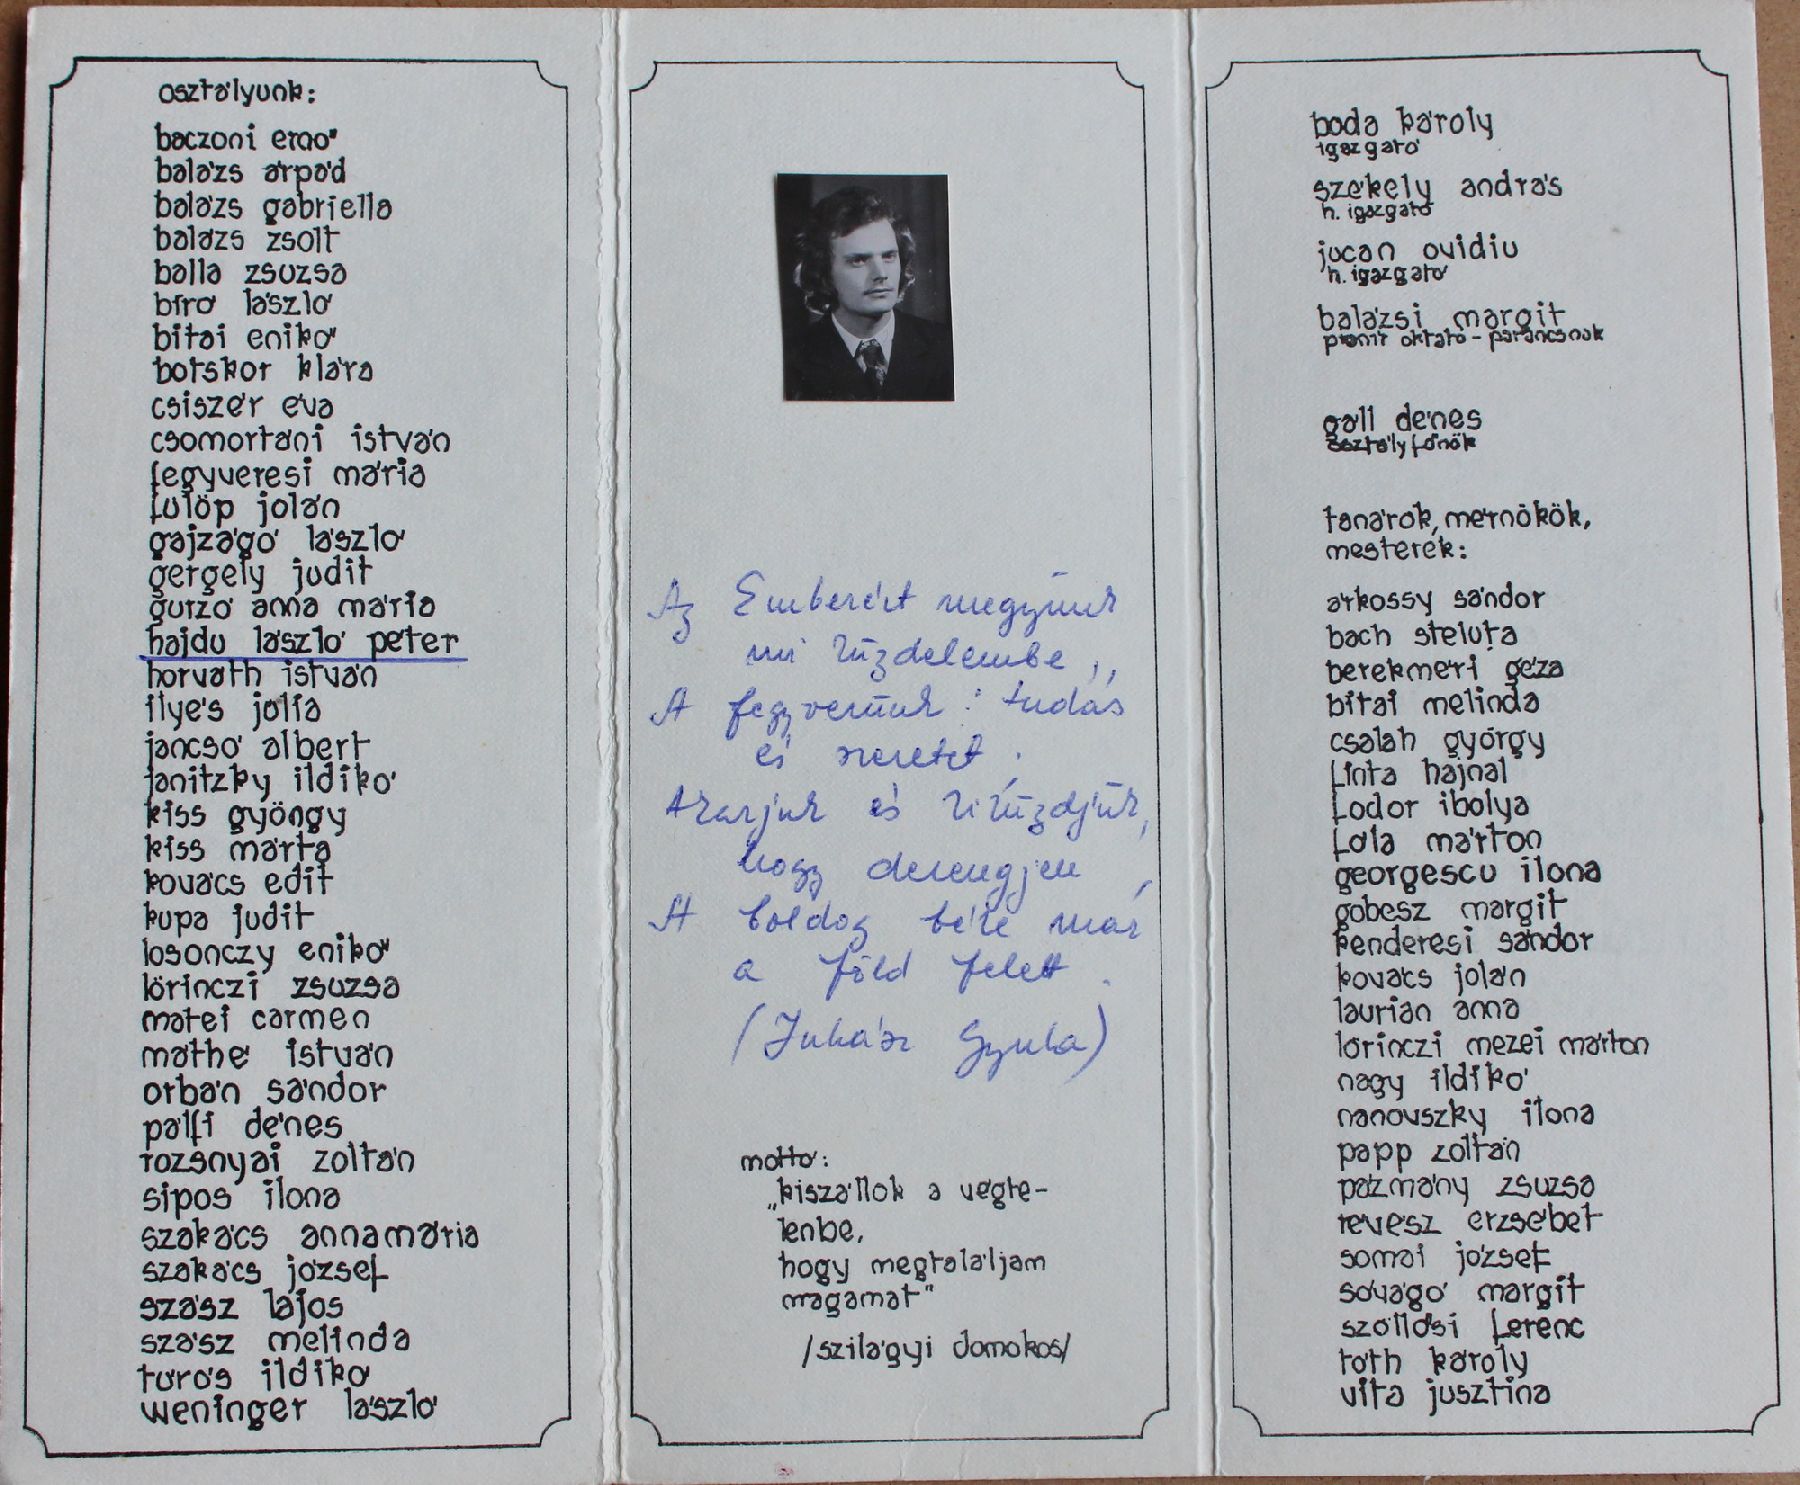 osztályunk:
baczoni ernő
balázs árpád
balázs gabriella
balázs zsolt
balla zsuzsa
bíró lászló
bitai enikő
botskor klára
csiszér éva
csomortáni istván
fegyveresi mária
fülöp jolán
gajzágó lászló
gergely judit
gurzó anna mária
hajdu lászló péter
horváth istván
ilyés jolía
jancsó albert
janitzky ildikó
kiss gyöngy
kiss márta
kovács edit
kupa judit
losonczy enikő
lőrinczi zsuzsa
matei carmen
máthé istván
orbán sándor
pálfi dénes
rozsnyai zoltán
sipos ilona
szakács annamária
szakács józsef
szász lajos
szász melinda
túrós ildikó
weninger lászló
Az Emberért megyünk
mi küzdelembe,
A fegyverünk: tudás
és szeretet.
Akarjuk és kiküzdjük,
hogy derengjen
A boldog béke már
a föld felett.
(Juhász Gyula)
mottó:
„kiszállok a végte-
lenbe,
hogy megtaláljam
magamat"
/szilágyi domokos/
boda károly
igazgató
székely andrás
h. igazgató
jucan ovidiu
h. igazgató
balázsi margit
pionír oktató - parancsnok
gáll dénes
osztályfőnök
tanárok, mérnökök,
mesterek:
árkossy sándor
bach steluța
berekméri géza
bitai melinda
csalah györgy
finta hajnal
fodor ibolya
fola márton
georgescu ilona
göbesz margit
kenderesi sándor
kovács jolán
laurian anna
lőrinczi mezei márton
nagy ildikó
nanovszky ilona
papp zoltán
pázmány zsuzsa
révész erzsébet
somai józsef
sóvágó margit
szöllősi ferenc
tóth károly
vita jusztina